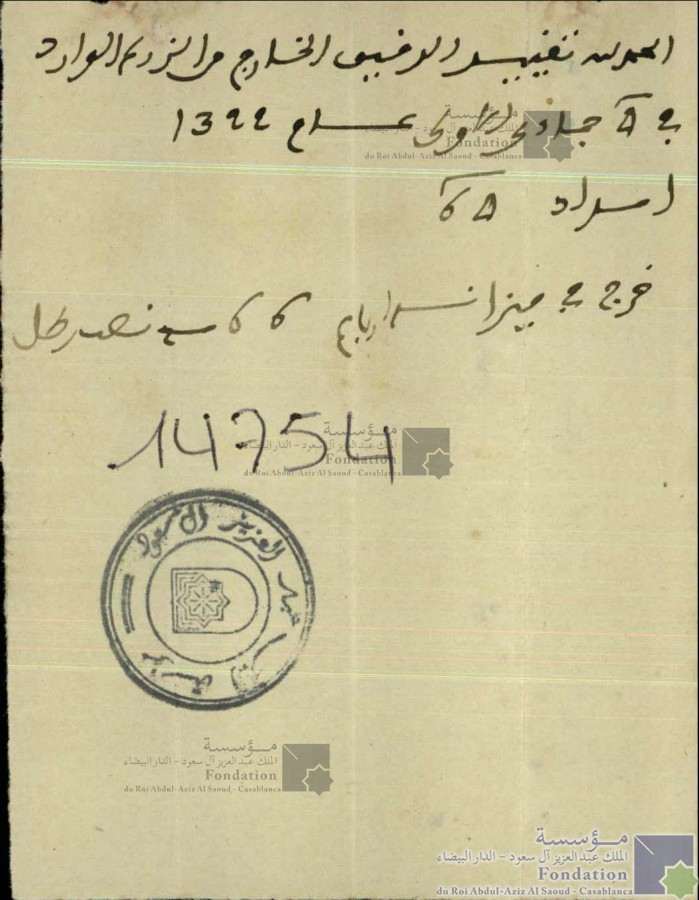 الحمد لله تقييد الدقيق الخارج من الزرع الوارد
في 5 جمادى الأولى عام 1322
امداد 65
خرج في ميزانه ارباع 66 نصف رطل
14754
مؤسسة الملك عبد العزيز آل سعود
مؤسسة
الملك عبد العزيز آل سعود - الدار البيضاء
Fondation
du Roi Abdul-Aziz Al Saoud - Casablanca
مؤسسة
الملك عبد العزيز آل سعود - الدار البيضاء
Fondation
du Roi Abdul-Aziz Al Saoud - Casablanca
مؤسسة
الملك عبد العزيز آل سعود - الدار البيضاء
Fondation
du Roi Abdul-Aziz Al Saoud - Casablanca
مؤسسة
الملك عبد العزيز آل سعود - الدار البيضاء
Fondation
du Roi Abdul-Aziz Al Saoud - Casablanca